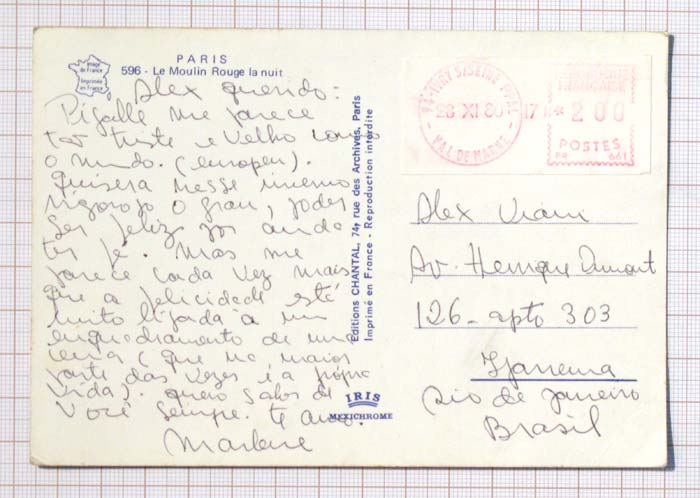 PARIS
596 - Le Moulin Rouge la nuit
Image de France
Imprimée en France
Alex querido:
Pigalle me parece
tão triste e velho como
o mundo. (europeu).
Quisera nesse inverno
rigoroso o grau, poder
ser feliz por ainda
ter fé. Mas me
parece cada vez mais
que a felicidade está
muito ligada à um
enquadramento de uma
cena (que na maior
parte das vezes é a própria
vida). quero saber de
você sempre. te amo.
Marlene
Editions CHANTAL, 74, rue des Archives, Paris
Imprimé en France - Reproduction interdite
IRIS
MEXICHROME
94-IVRY S/SEINE PPAL
VAL DE MARNE
28 XI 80
17 H
REPUBLIQUE
FRANCAISE
2 00
POSTES
PR 661
Alex Viany
Av. Henrique Dumont
126 - apto 303
Ipanema
Rio de Janeiro
Brasil